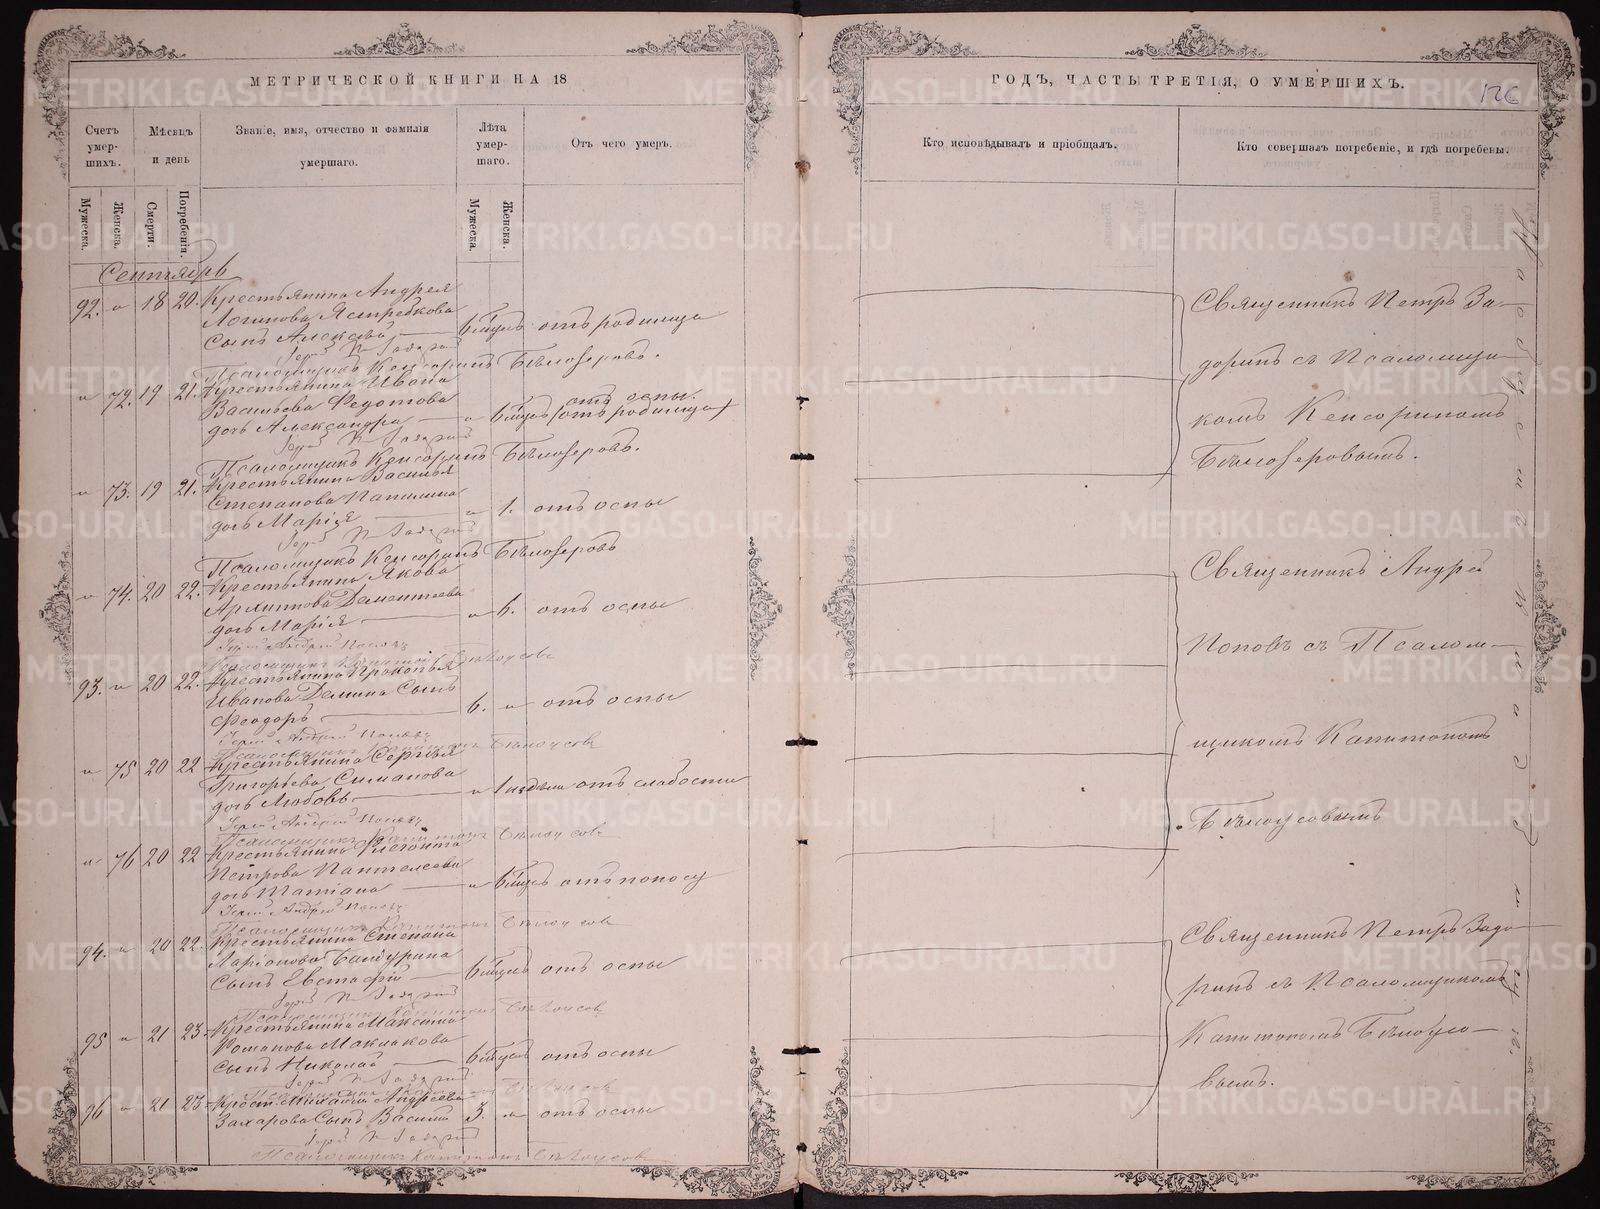 МЕТРИЧЕСКОЙ КНИГИ НА 18
Счетъ умер-шихъ.
Мѣсяцъ и день
Званіе, имя, отчество и фамилія умершаго.
Лѣта умер-шаго.
Отъ чего умеръ.
Мужеска.
Женска.
Смерти.
Погребенія.
Мужеска.
Женска.
Сентябрь
92. " 18 20. Крестьянина Андрея
Логинова Ястребкова
сынъ Алексѣй отъ родимца
Іерей П Задоринъ
Псаломщикъ Кенсоринъ Бѣлозеровъ.
" 72. 19 21. Крестьянина Ивана
Васильева Федотова отъ оспы.
дочь Александра " (отъ родимца)
Іерей П Задоринъ
Псаломщикъ Кенсоринъ Бѣлозеровъ.
" 73. 19 21. Крестьянина Василья
Степанова
дочь Марія " 1. отъ оспы
Іерей П Задоринъ
Псаломщикъ Кенсоринъ Бѣлозеровъ
" 74. 20 22. Крестьянина Якова
Архипова Дементьева
дочь Марія " отъ оспы
Іерей Андрей Поповъ
Псаломщикъ Капитонъ Бѣлоусовъ
93. " 20 22. Крестьянина Прокопья
Иванова Демина сынъ
Феодоръ 6. " отъ оспы
Іерей Андрей Поповъ
Псаломщикъ Капитонъ Бѣлоусовъ
" 75 20 22 Крестьянина Сергѣя
Григорьева Симанова
дочь Любовь " 1 недѣли отъ слабости
Іерей Андрей Поповъ
Псаломщикъ Капитонъ Бѣлоусовъ
" 76 20 22 Крестьянина Флегонта
Петрова Пантелеева
дочь Татіана " отъ поносу
Іерей Андрей Поповъ
Псаломщикъ Капитонъ Бѣлоусовъ
94. " 20 22. Крестьянина Степана
Ларіонова Батурина
сынъ Евстафій отъ оспы
Іерей П Задоринъ
Псаломщикъ Капитонъ Бѣлоусовъ
95 " 21 23. Крестьянина Максима
Романова Маклакова
сынъ Николай отъ оспы
Іерей П Задоринъ
Псаломщикъ Капитонъ Бѣлоусовъ
96 " 21 23. Крест. Михаила Андреева
Захарова сынъ Василій 3. " отъ оспы
Іерей П Задоринъ
Псаломщикъ Капитонъ Бѣлоусовъ
ГОДЪ, ЧАСТЬ ТРЕТІЯ, О УМЕРШИХЪ.
126
Кто исповѣдывалъ и пріобщалъ.
Кто совершалъ погребеніе, и гдѣ погребены.
Священникъ Петръ За-
доринъ съ Псаломщи-
комъ Кенсориномъ
Бѣлозеровымъ.
Священникъ Андрей
Поповъ съ Псалом-
щикомъ Капитономъ
Бѣлоусовымъ
Священникъ Петръ Задо-
ринъ съ Псаломщикомъ
Капитономъ Бѣлоусо-
вымъ.
METRIKI.GASO-URAL.RU